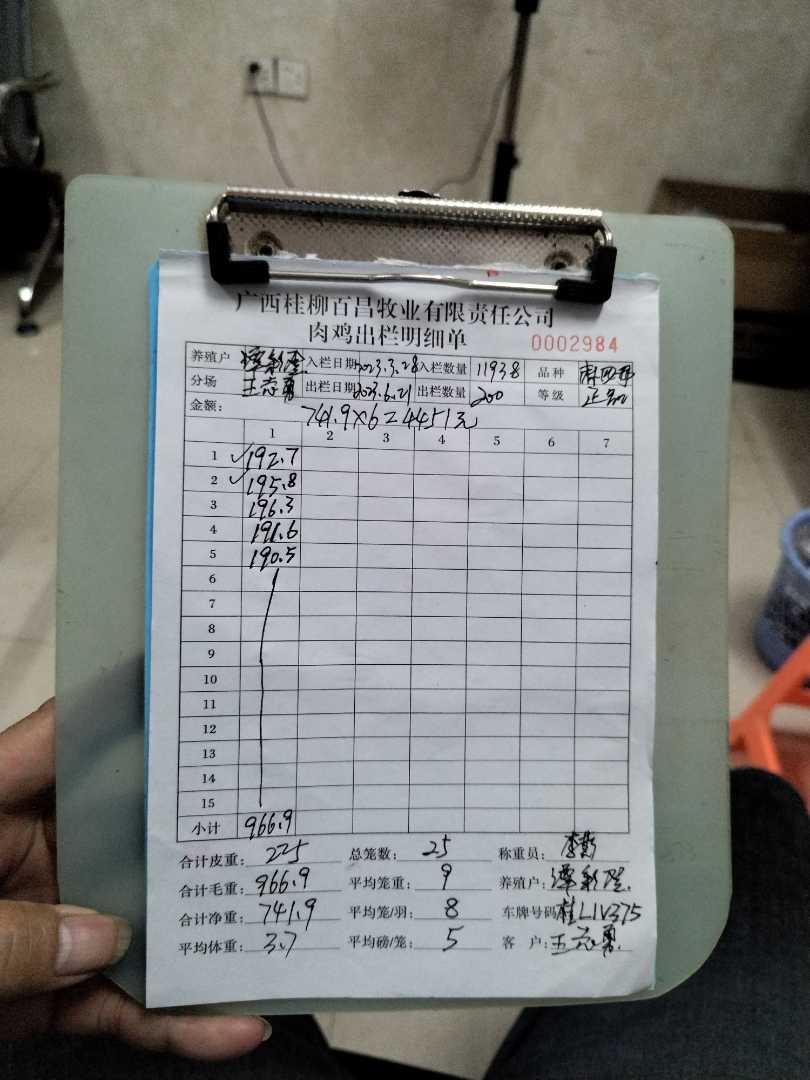 广西桂柳百昌牧业有限责任公司
肉鸡出栏明细单 0002984
养殖户 谭彩莹 入栏日期 2023.3.28 入栏数量 11938 品种
分场 王志勇 出栏日期 2023.6.21 出栏数量 200 等级 正品
金额: 741.9×6=4451元
1 2 3 4 5 6 7
1 192.7
2 195.8
3 196.3
4 191.6
5 190.5
6
7
8
9
10
11
12
13
14
15
小计 966.9
合计皮重: 225 总笼数: 25 称重员:
合计毛重: 966.9 平均笼重: 9 养殖户:
合计净重: 741.9 平均笼/羽: 8 车牌号码 桂L1V375
平均体重: 3.7 平均磅/笼: 5 客 户: 王志勇